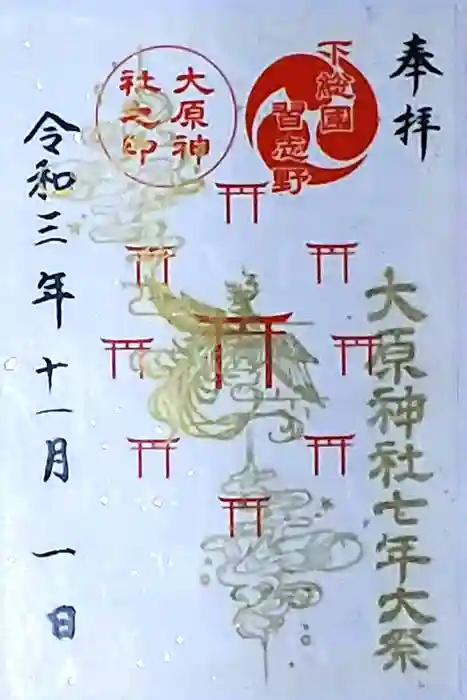 奉拝
下総國
習志野
大原神社七年大祭
大原神
社之印
令和三年十一月一日